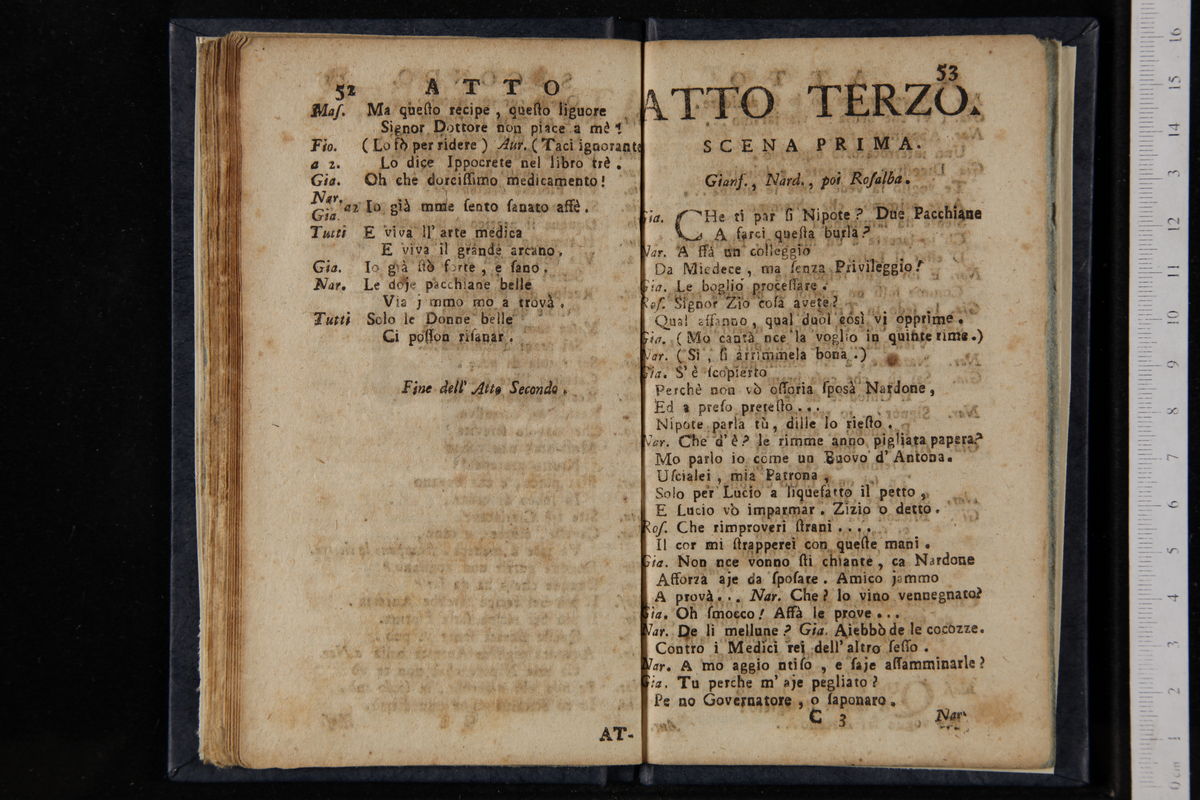 52 ATTO
Maſ. Ma queſto recipe, queſto liguore
Signor Dottore non piace a mè!
Fio. (Lo fò per ridere) Aur. (Taci ignorante
a 2. Lo dice Ippocrete nel libro trè.
Gia. Oh che dorciſſimo medicamento!
Nar.
Gia. a2 Io già mme ſento ſanato affè.
Tutti E viva ll' arte medica
E viva il grande arcano.
Gia. Io già ſtò forte, e ſano.
Nar. Le doje pacchiane belle
Via j mmo mo a trovà.
Tutti Solo le Donne belle
Ci poſſon riſanar.
Fine dell' Atto Secondo.
AT-
53
ATTO TERZO.
SCENA PRIMA.
Gianſ., Nard., poi Roſalba.
Gia. CHe ti par ſi Nipote? Due Pacchiane
A farci queſta burla?
Nar. A ffà un colleggio
Da Miedece, ma ſenza Privileggio!
Gia. Le boglio proceſſare.
Roſ. Signor Zio coſa avete?
Qual affanno, qual duol così vi opprime.
Gia. (Mo cantà nce la voglio in quinte rime.)
Nar. (Sì, ſi arrimmela bona.)
Gia. S'è ſcopierto
Perchè non vò oſſoria ſposà Nardone,
Ed a preſo preteſto...
Nipote parla tù, dille lo rieſto.
Nar. Che d'è? le rimme anno pigliata papera?
Mo parlo io come un Buovo d' Antona.
Uſcialei, mia Patrona,
Solo per Lucio a liquefatto il petto,
E Lucio vò imparmar. Zizio o detto.
Roſ. Che rimproveri ſtrani....
Il cor mi ſtrapperei con queſte mani.
Gia. Non nce vonno ſti chiante, ca Nardone
Afforza aje da ſpoſare. Amico jammo
A provà... Nar. Che? lo vino vennegnato?
Gia. Oh ſmocco! Affà le prove...
Nar. De li mellune? Gia. Aiebbò de le cocozze.
Contro i Medici rei dell' altro ſeſſo.
Nar. A mo aggio ntiſo, e ſaje aſſamminarle?
Gia. Tu perche m' aje pegliato?
Pe no Governatore, o ſaponaro.
C 3 Nar.